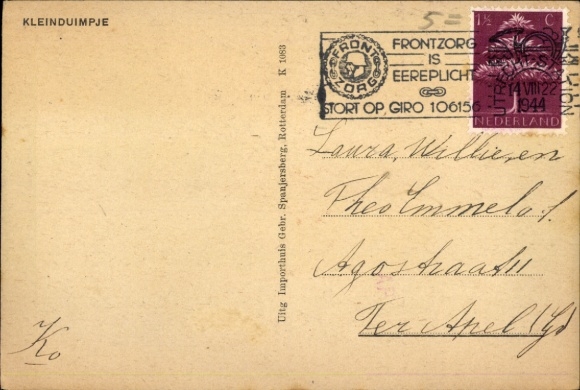 KLEINDUIMPJE
5=
1½ C
FRONT
ZORG
FRONTZORG
IS
EEREPLICHT
STORT OP GIRO 106156
UTRECHT
STATION
14 VIII 22
1944
NEDERLAND
Uitg Importhuis Gebr. Spanjersberg, Rotterdam K 1083
Laura, Willie, en
Theo Immelo.
Agostraat 11
Ter Apel (Gr)
Ko